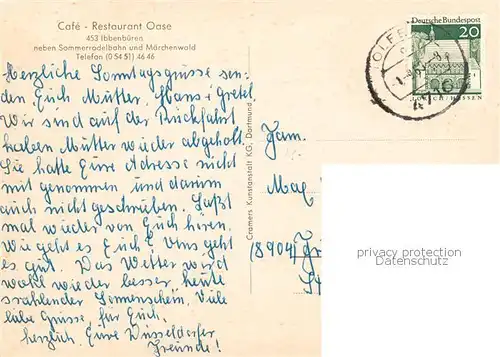 Café - Restaurant Oase
453 Ibbenbüren
neben Sommerrodelbahn und Märchenwald
Telefon (0 54 51) 46 46
Herzliche Sonntagsgrüsse sen-
den Euch Mutter, Hans + Gretel.
Wir sind auf der Rückfahrt
haben Mutter wieder abgeholt.
Sie hatte Eure Adresse nicht
mit genommen und darum
auch nicht geschrieben. Laßt
mal wieder von Euch hören.
Wie geht es Euch? Uns geht
es gut. Das Wetter wird
wohl wieder besser, heute
strahlender Sonnenschein. Viele
liebe Grüsse für Euch.
herzlich. Eure Düsseldorfer
Freunde!
Cramers Kunstanstalt KG, Dortmund
Deutsche Bundespost
20
LORSCH/HESSEN
Fam.
Max
(8904)
privacy protection
Datenschutz